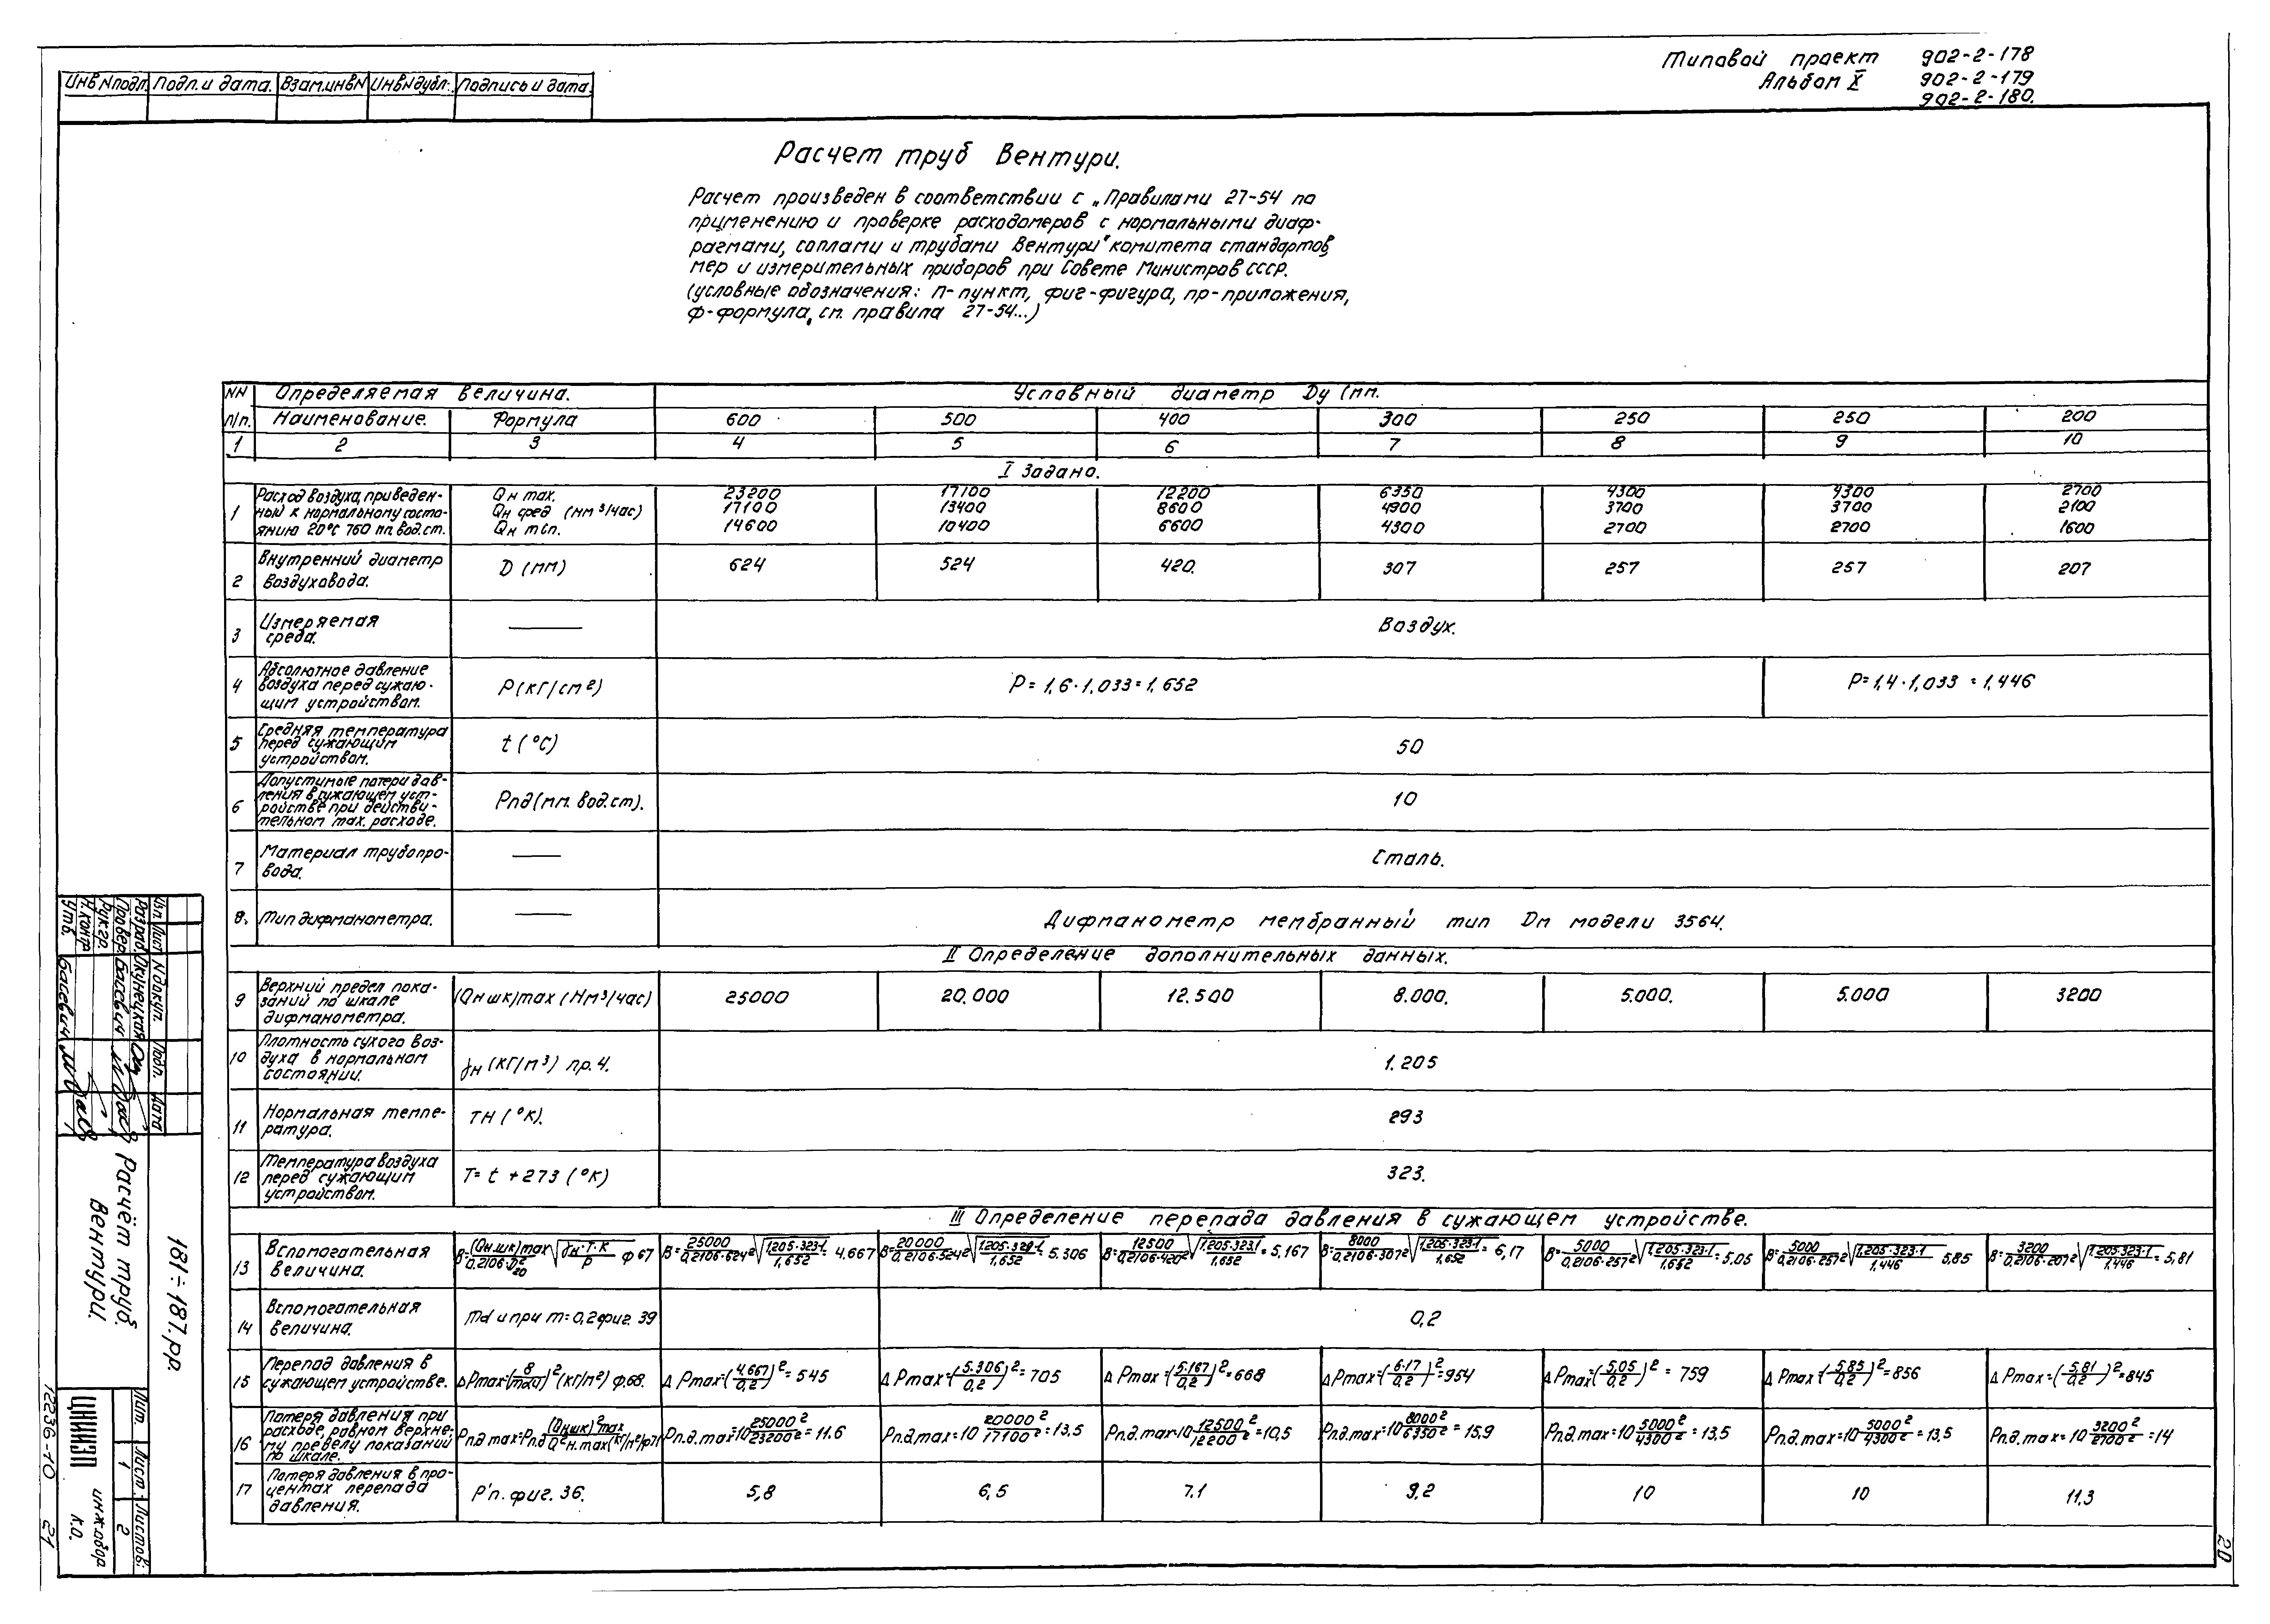 Типовой проект 902-2-178
Альбом X 902-2-179
902-2-180.
Инв.№подл. Подп. и дата. Взам.инв№ Инв№дубл. Подпись и дата.
Расчет труб Вентури.
Расчет произведен в соответствии с „Правилами 27-54 по
применению и проверке расходомеров с нормальными диаф-
рагмами, соплами и трубами Вентури" комитета стандартов,
мер и измерительных приборов при Совете Министров СССР.
(условные обозначения: п-пункт, фиг-фигура, пр-приложения,
ф-формула, см. правила 27-54...)
NN Определяемая величина. Условный диаметр Dу (мм.
п/п. Наименование. Формула 600 500 400 300 250 250 200
1 2 3 4 5 6 7 8 9 10
I Задано.
Расход воздуха, приведен- Qн max. 23200 17100 12200 6350 4300 4300 2700
1 ный к нормальному состо- Qн сред (нм³/час) 17100 13400 8600 4900 3700 3700 2100
янию 20°С 760 мм вод.ст. Qн min. 14600 10400 6600 4300 2700 2700 1600
Внутренний диаметр
2 воздуховода. D (мм) 624 524 420. 307 257 257 207
3 Измеряемая
среда. Воздух.
Абсолютное давление
4 воздуха перед сужаю- P(кг/см²) P = 1,6 · 1,033 = 1,652 P = 1,4 · 1,033 = 1,446
щим устройством.
Средняя температура
5 перед сужающим t (°С) 50
устройством.
Допустимые потери дав-
ления в сужающем уст-
6 ройстве при действи- Pпд(мм. вод.ст). 10
тельном max. расходе.
Материал трубопро-
7 вода. Сталь.
8. Тип дифманометра. Дифманометр мембранный тип Dм модели 3564.
II Определение дополнительных данных.
Верхний предел пока-
9 заний по шкале (Qн шк)max (Нм³/час) 25000 20.000 12.500 8.000. 5.000. 5.000 3200
дифманометра.
Плотность сухого воз-
10 духа в нормальном γн (кг/м³) пр.4. 1.205
состоянии.
Нормальная темпе-
11 ратура. TН (°К). 293
Температура воздуха
12 перед сужающим T= t +273 (°К) 323.
устройством.
III Определение перепада давления в сужающем устройстве.
13 Вспомогательная величина. B=(Qн.шк)max/0,2106·D²20 √γн·T·К/P ф 67 B=25000/0,2106·624² √1,205·323·1/1,652 = 4.667 B=20000/0,2106·524² √1,205·323·1/1,652 = 5.306 B=12500/0,2106·420² √1,205·323·1/1,652 = 5,167 B=8000/0,2106·307² √1,205·323·1/1,652 = 6,17 B=5000/0,2106·257² √1,205·323·1/1,652 = 5,05 B=5000/0,2106·257² √1,205·323·1/1,446 5,85 B=3200/0,2106·207² √1,205·323·1/1,446 = 5,81
14 Вспомогательная величина. md и при m=0,2 фиг. 39 0,2
15 Перепад давления в сужающем устройстве. ΔPmax=(B/md)² (кг/м²) ф.68. Δ Pmax=(4,667/0,2)²=545 Δ Pmax=(5.306/0,2)²=705 Δ Pmax=(5,167/0,2)²=668 ΔPmax=(6.17/0,2)²=954 ΔPmax=(5,05/0,2)²=759 Δ Pmax=(5,85/0,2)²=856 Δ Pmax=(5,81/0,2)²=845
Потеря давления при
расходе, равном верхне-
16 му пределу показаний Pп.д max=Pпд (Qн.шк)²max/Q²н.max Pп.д.max=10 25000²/23200²=11.6 Pп.д.max=10 20000²/17100²=13,5 Pп.д.max=10 12500²/12200²=10,5 Pп.д.max=10 8000²/6350²=15.9 Pп.д.max=10 5000²/4300²=13,5 Pп.д.max=10 5000²/4300²=13,5 Pп.д.max=10 3200²/2700²=14
по шкале.
Потеря давления в про-
17 центах перепада P'п. фиг. 36. 5,8 6,5 7.1 9,2 10 10 11,3
давления.
Изм. Лист № докум. Подп. Дата
Разраб. Окунецкая
Провер. Басевич
Рук.гр.
Н.контр
Утв. Басевич
181÷187.рр.
Расчёт труб
Вентури.
Лит. Лист. Листов:
1 2
ЦНИИЭП инж.обор
к.о.
12236-10 21
20